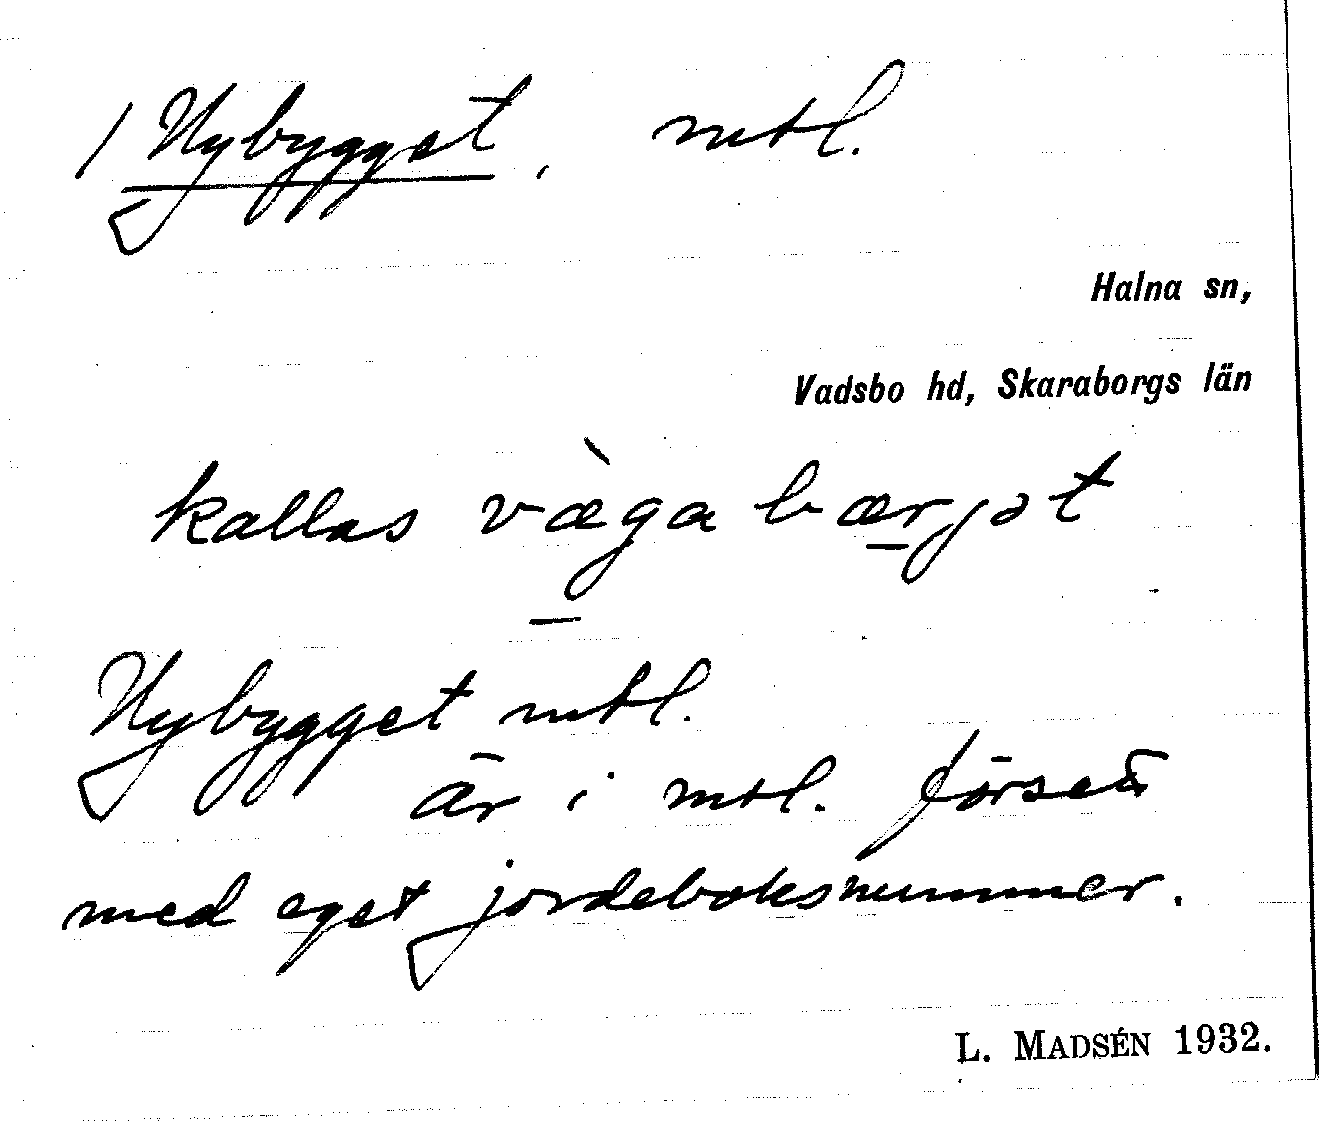 / Nybygget, mtl.
Halna sn,
Vadsbo hd, Skaraborgs län
kallas væ̀ga bærjat
Nybygget mtl.
är i mtl. försett
med eget jordeboksnummer.
L. MADSÉN 1932.